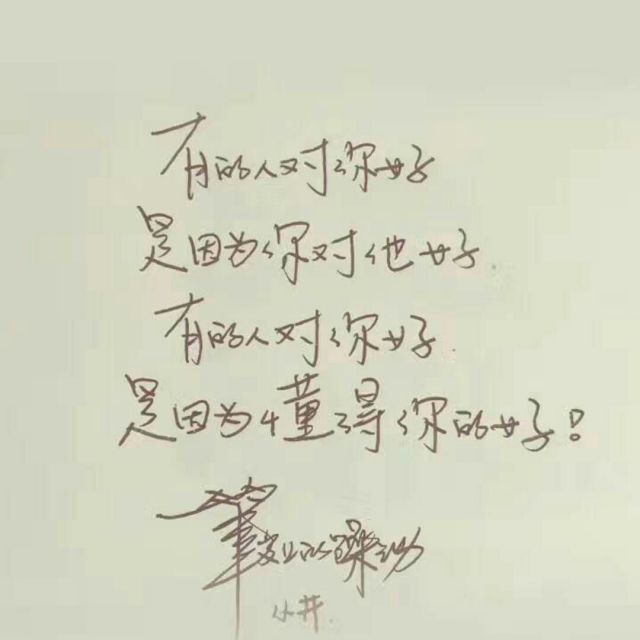 有的人对你好
是因为你对他好.
有的人对你好.
是因为懂得你的好!
笔尖上的躁动
小井